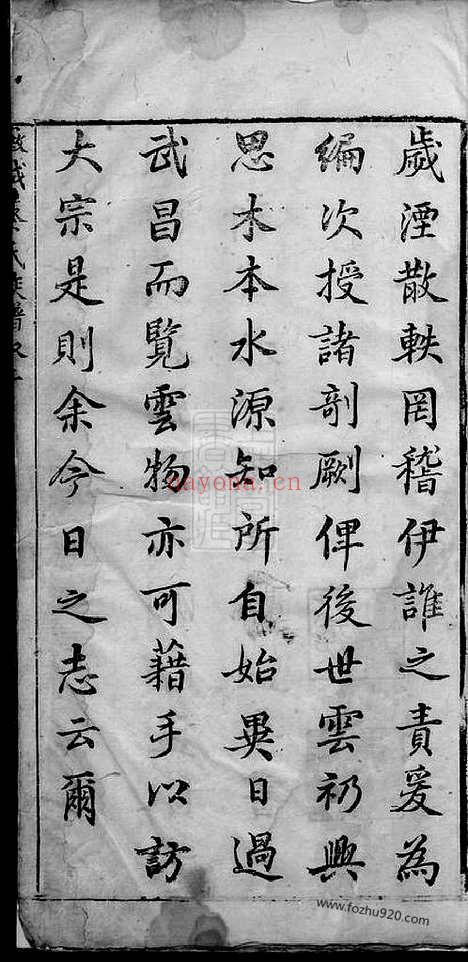 歲湮散軼罔稽伊誰之責爰為
編次授諸剞劂俾後世雲礽興
思木本水源知所自始異日過
武昌而覽雲物亦可藉手以訪
大宗是則余今日之志云爾
氏族譜
nayona.cn
www.fozhu920.com